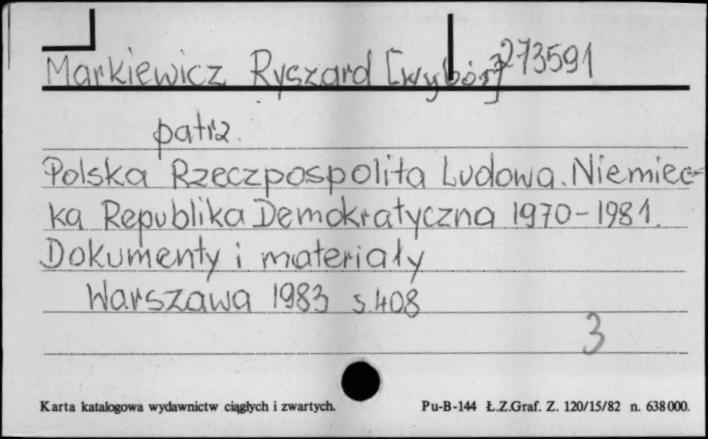 Markiewicz Ryszard [wybór] 273591
patrz
Polska Rzeczpospolita Ludowa. Niemiec-
ka Republika Demokratyczna 1970-1981.
Dokumenty i materiały
Warszawa 1983 s.408
3
Karta katalogowa wydawnictw ciągłych i zwartych. Pu-B-144 Ł.Z.Graf. Z. 120/15/82 n. 638000.